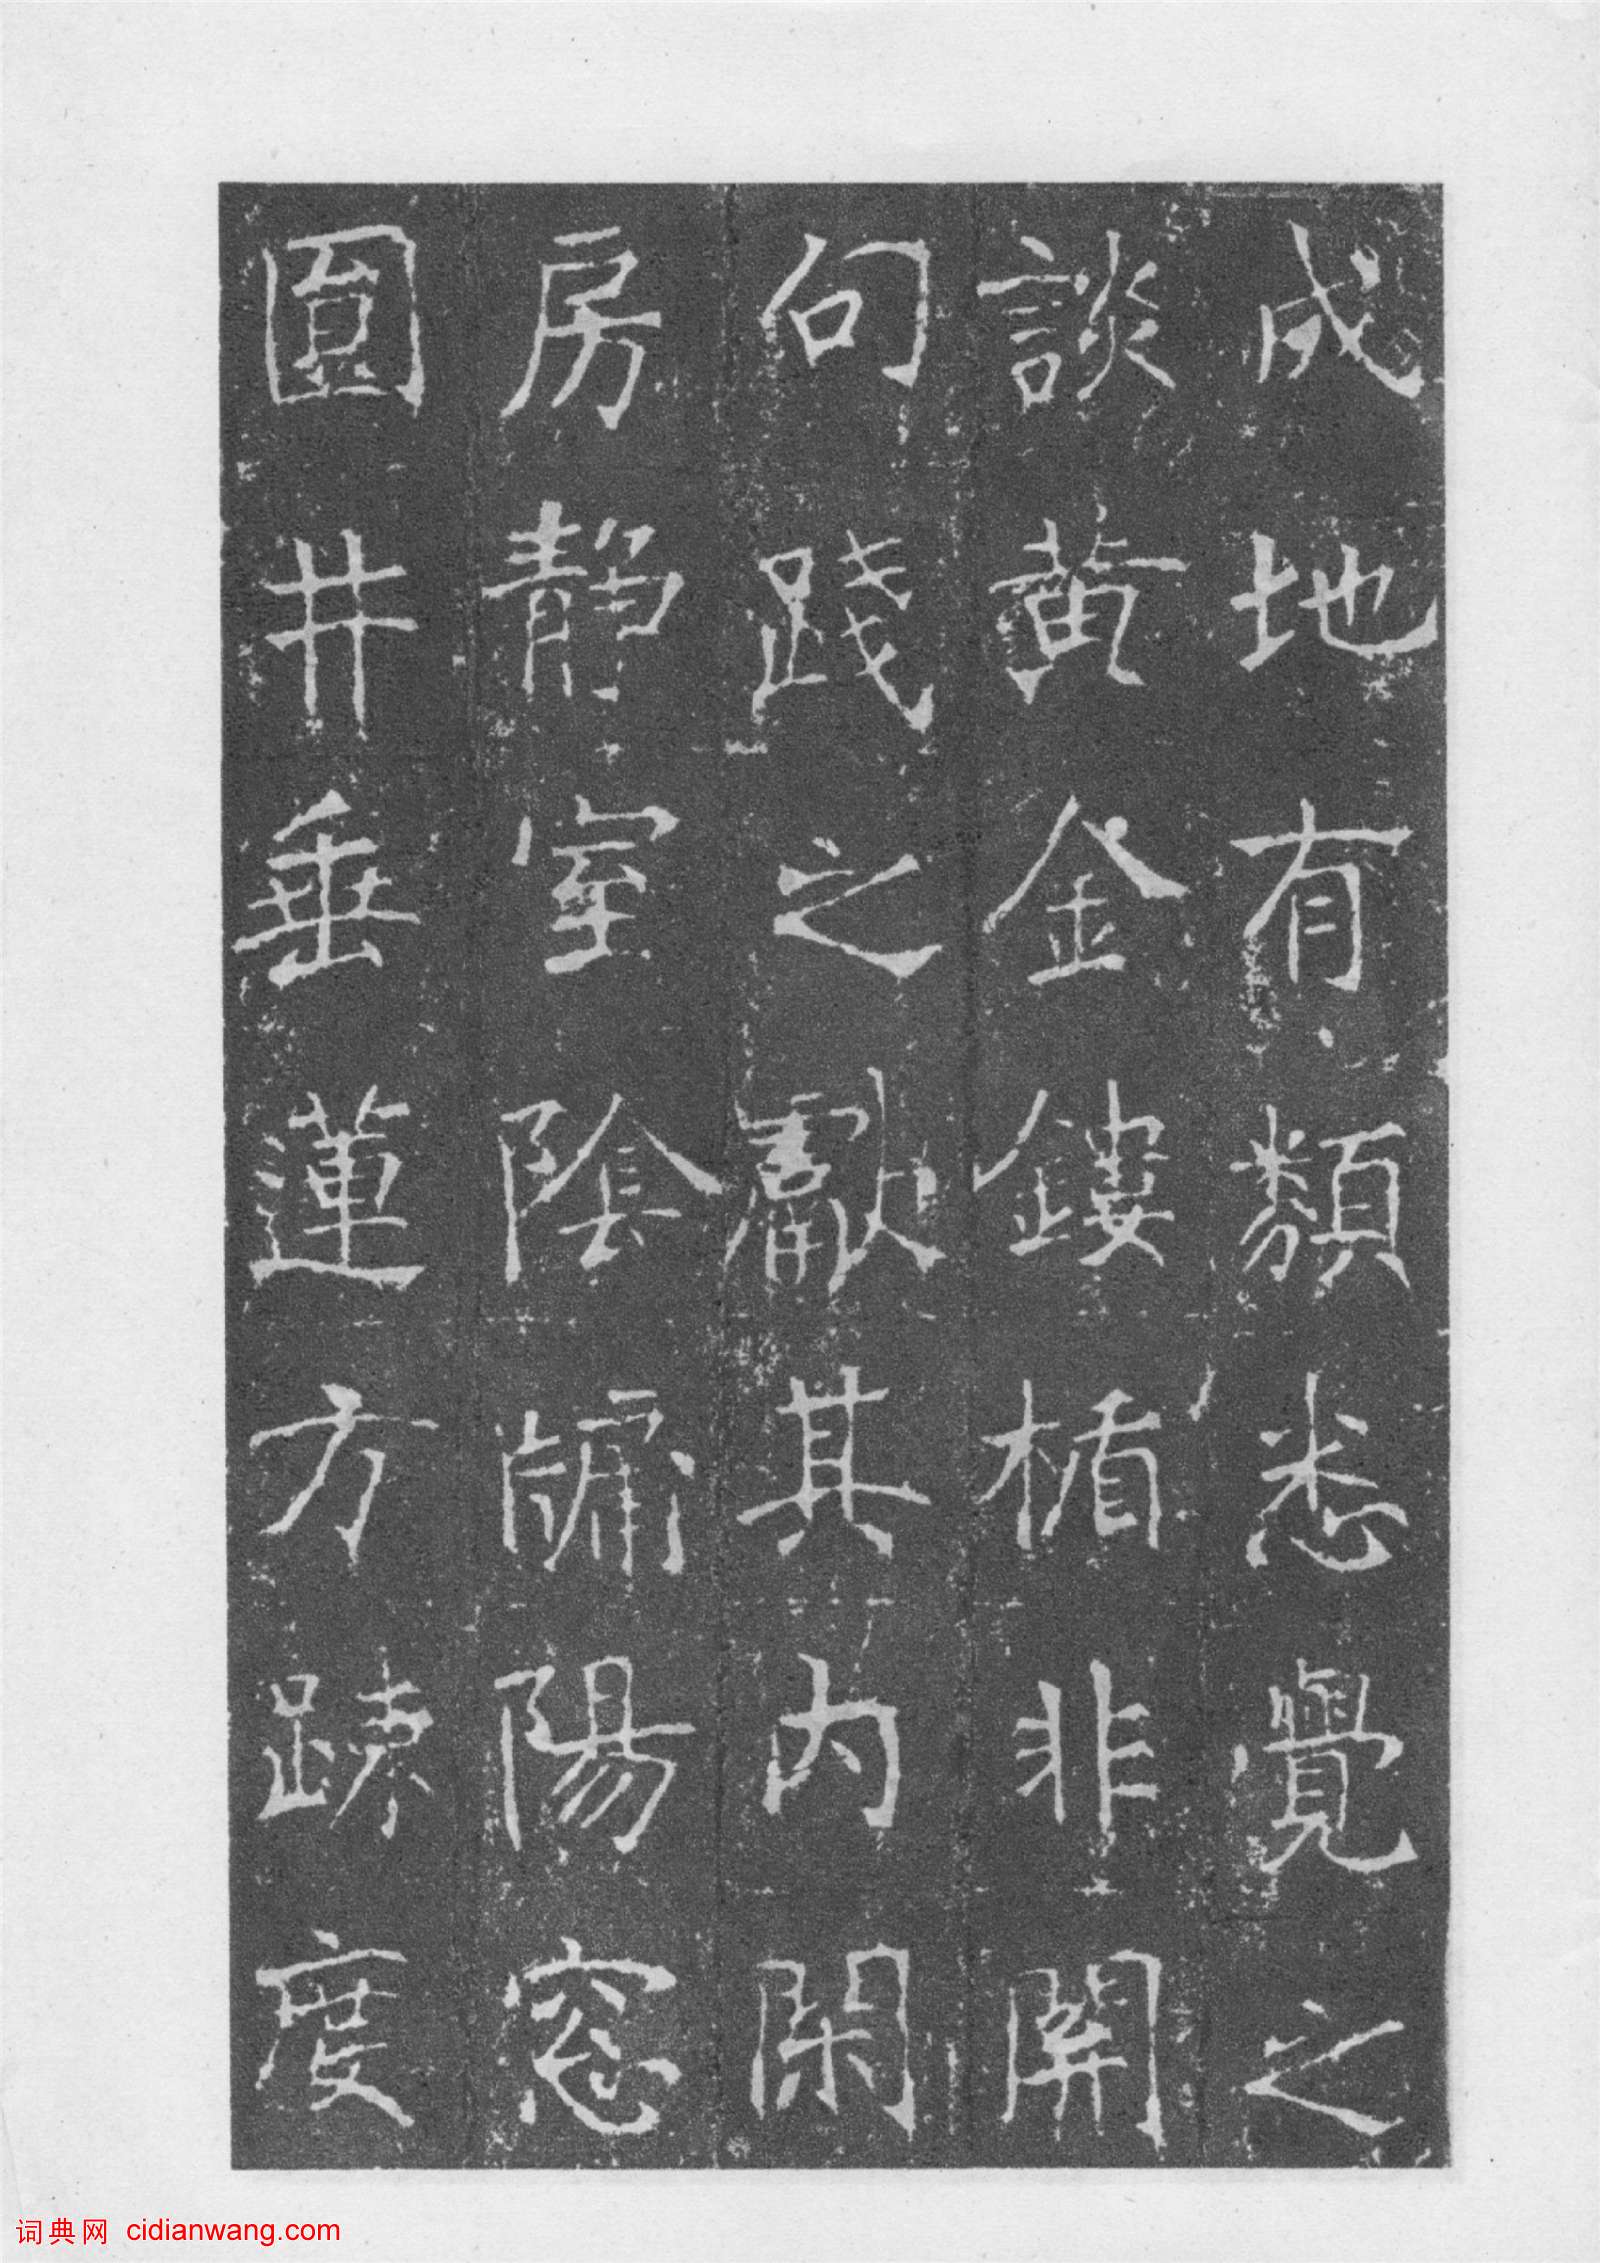 成地有類悉覺之
談黃金鏤楯非開
句踐之獻其內閑
房靜室陰牖陽窓
圓井垂蓮方疎度
词典网 cidianwang.com